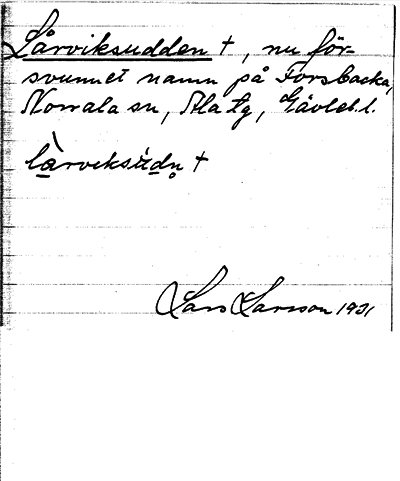 Lårviksudden †, nu för-
svunnet namn på Forsbacka,
Norrala sn, Ala tg, Gävleb. l.
lårveksudn †
Lars Larsson 1931